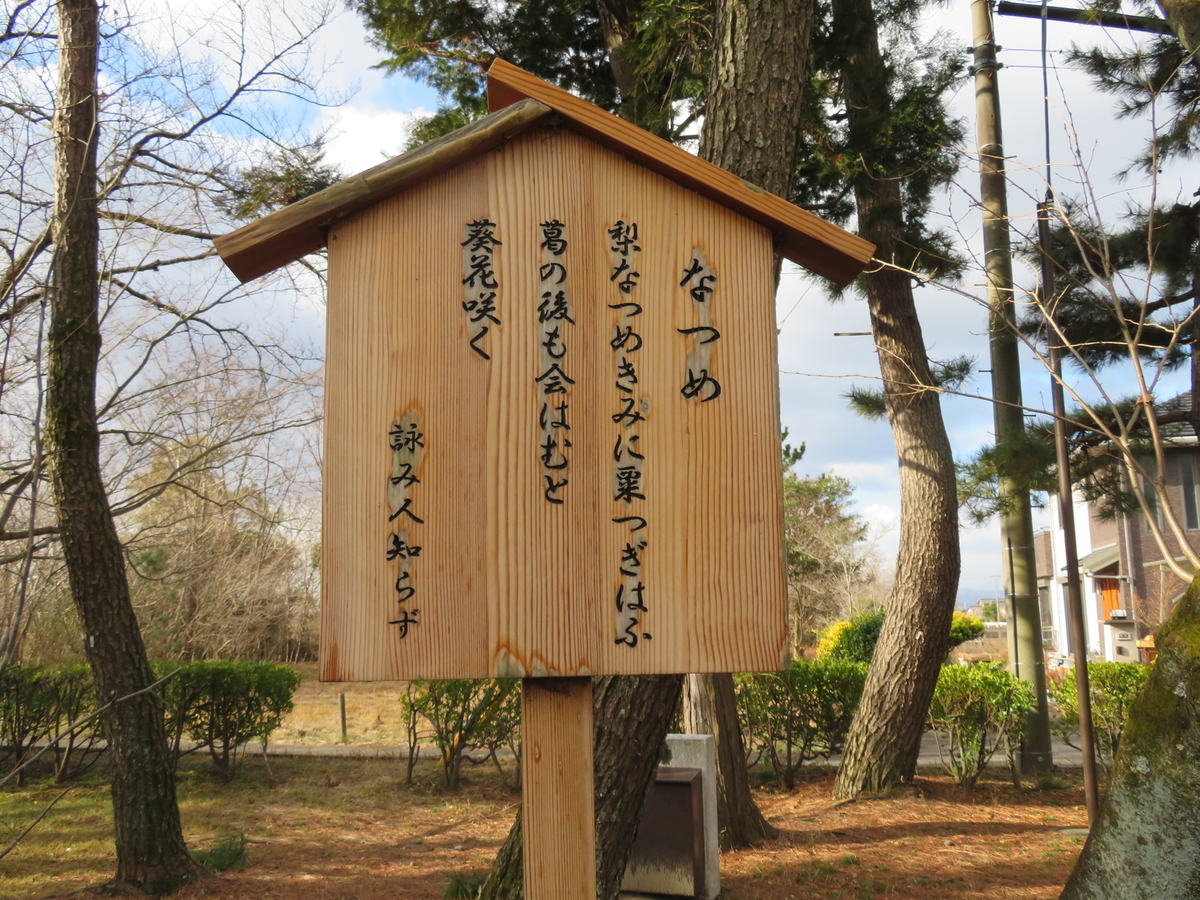 なつめ
梨なつめきみに粟つぎはふ
葛の後も会はむと
葵花咲く
詠み人知らず